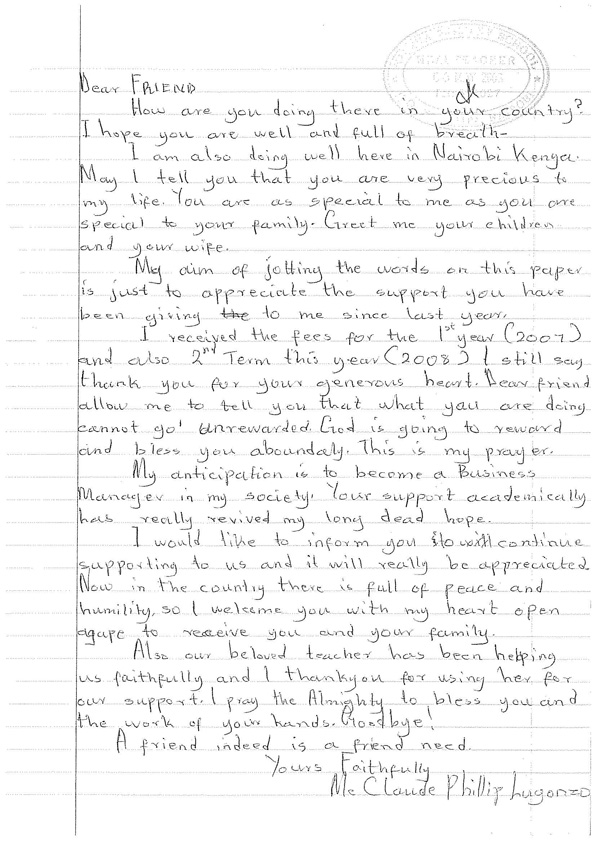 HEAD TEACHER
Dear FRIEND
How are you doing there in your country? ok
I hope you are well and full of breath-
I am also doing well here in Nairobi Kenya.
May I tell you that you are very precious to
my life. You are as special to me as you are
special to your family. Greet me your children
and your wife.
My aim of jotting the words on this paper
is just to appreciate the support you have
been giving the to me since last year.
I received the fees for the 1st year (2007)
and also 2nd Term this year (2008) I still say
thank you for your generous heart. Dear friend
allow me to tell you that what you are doing
cannot go' Unrewarded. God is going to reward
and bless you aboundaly. This is my prayer.
My anticipation is to become a Business
Manager in my society. Your support academically
has really revived my long dead hope.
I would like to inform you to continue
supporting to us and it will really be appreciated.
Now in the country there is full of peace and
humility, so I welcome you with my heart open
agape to receive you and your family.
Also our beloved teacher has been helping
us faithfully and I thankyou for using her for
our support. I pray the Almighty to bless you and
the work of your hands. Goodbye!
A friend indeed is a friend need.
Yours Faithfully
Mc Claude Phillip Lugonzo